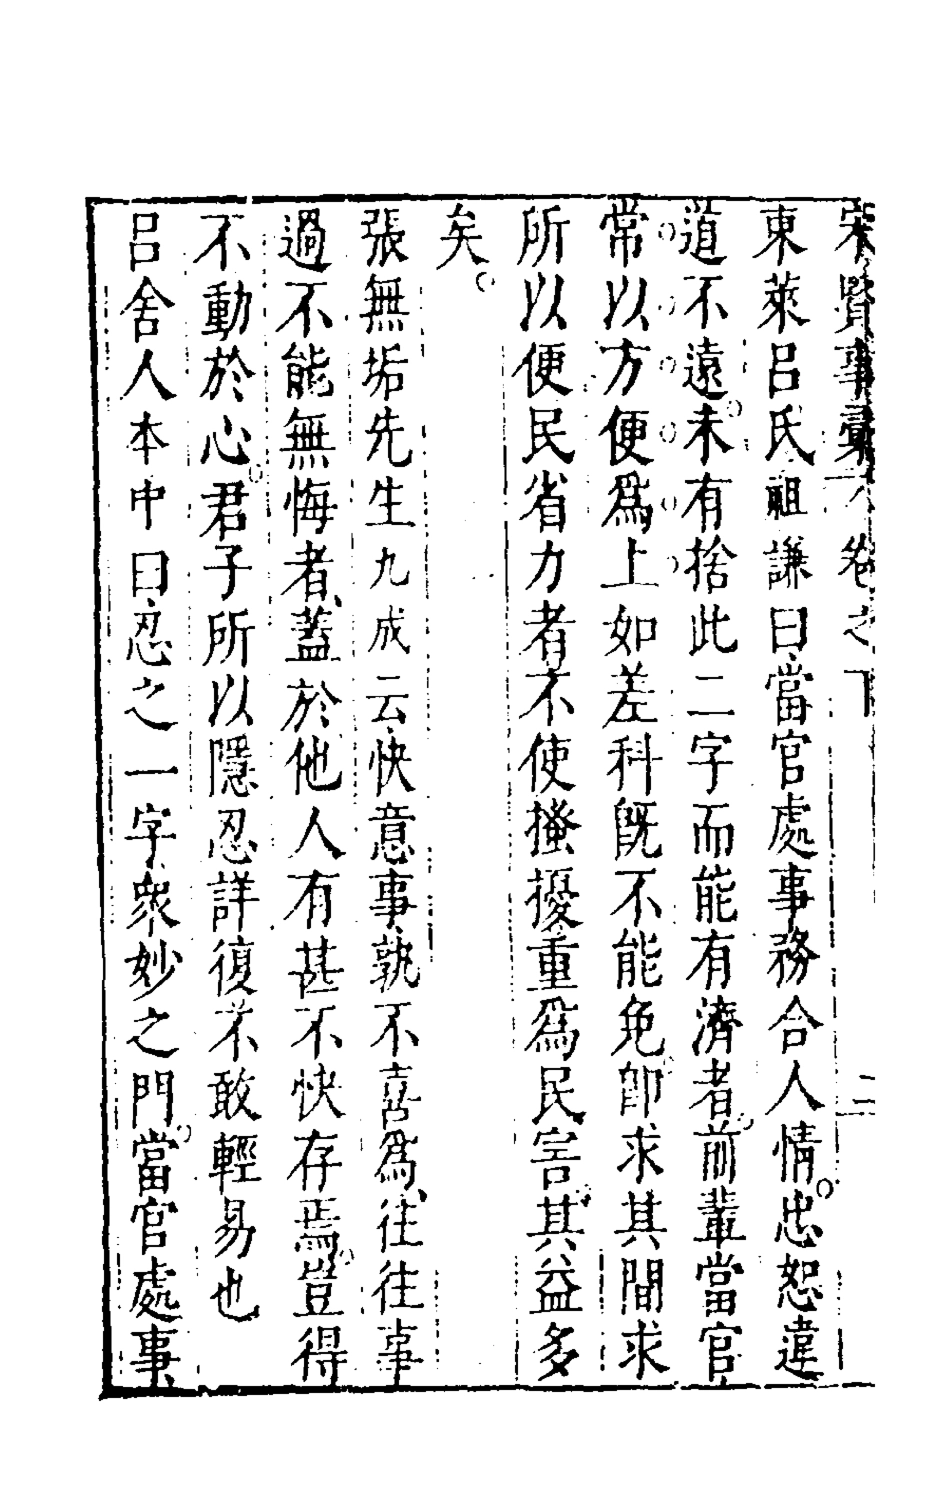 宋賢事彙 卷之下 二
東萊呂氏祖謙曰當官處事務合人情忠恕違
道不遠未有捨此二字而能有濟者前輩當官
常以方便爲上如差科旣不能免卽求其間求
所以便民省力者不使搔擾重爲民害其益多
矣
張無垢先生九成云快意事孰不喜爲往往事
過不能無悔者蓋於他人有甚不快存焉豈得
不動於心君子所以隱忍詳復不敢輕易也
呂舍人本中曰忍之一字衆妙之門當官處事